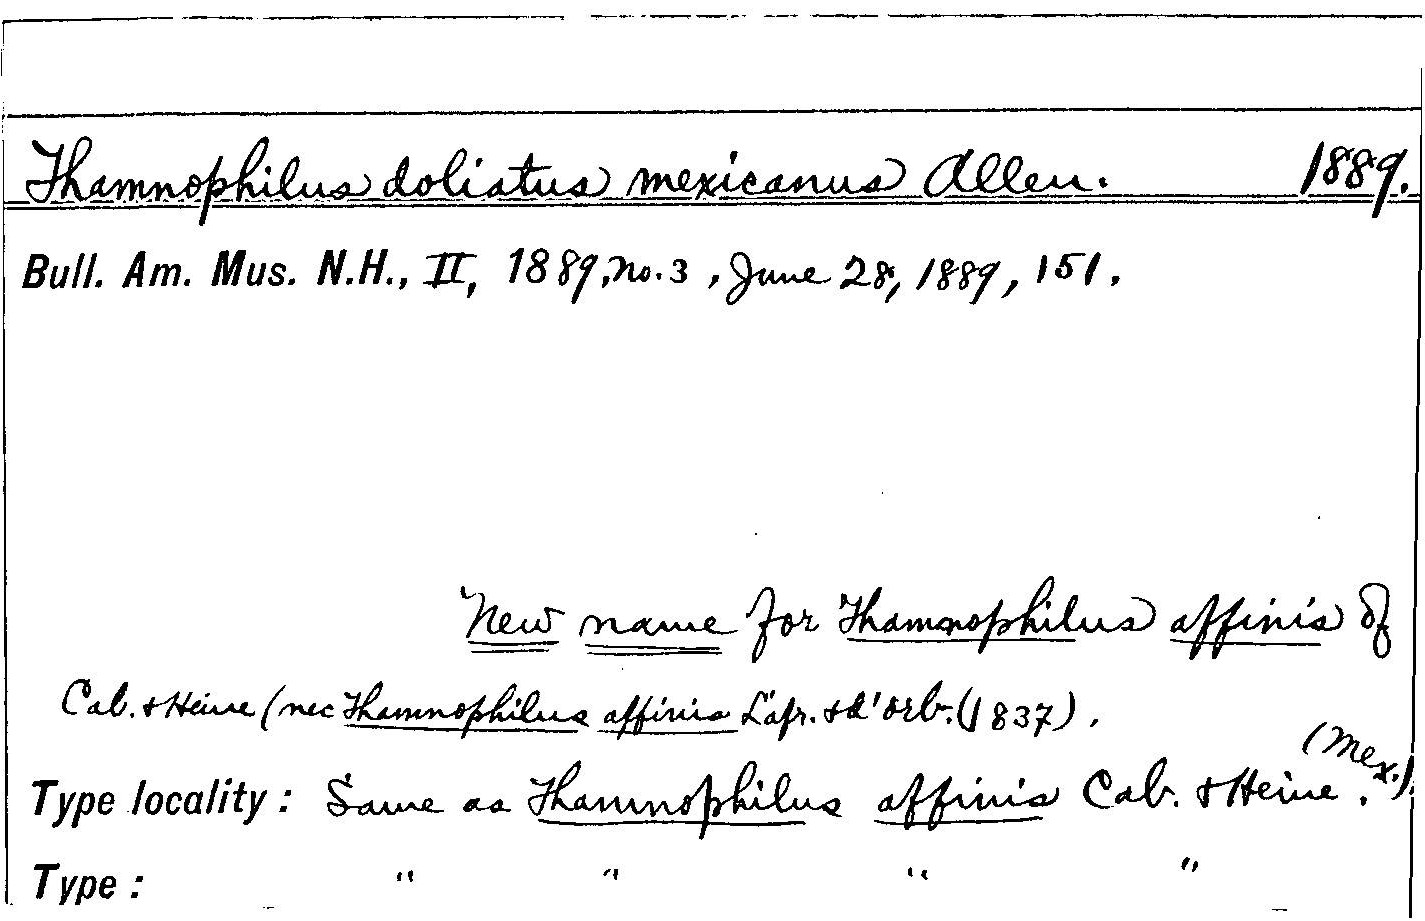 Thamnophilus doliatus mexicanus Allen. 1889.
Bull. Am. Mus. N.H., II, 1889, no. 3, June 28, 1889, 151.
New name for Thamnophilus affinis of
Cab. & Heine (nec Thamnophilus affinis Lafr. & d'Orb. (1837).
Type locality: Same as Thamnophilus affinis Cab. & Heine. (Mex.).
Type: " " " "